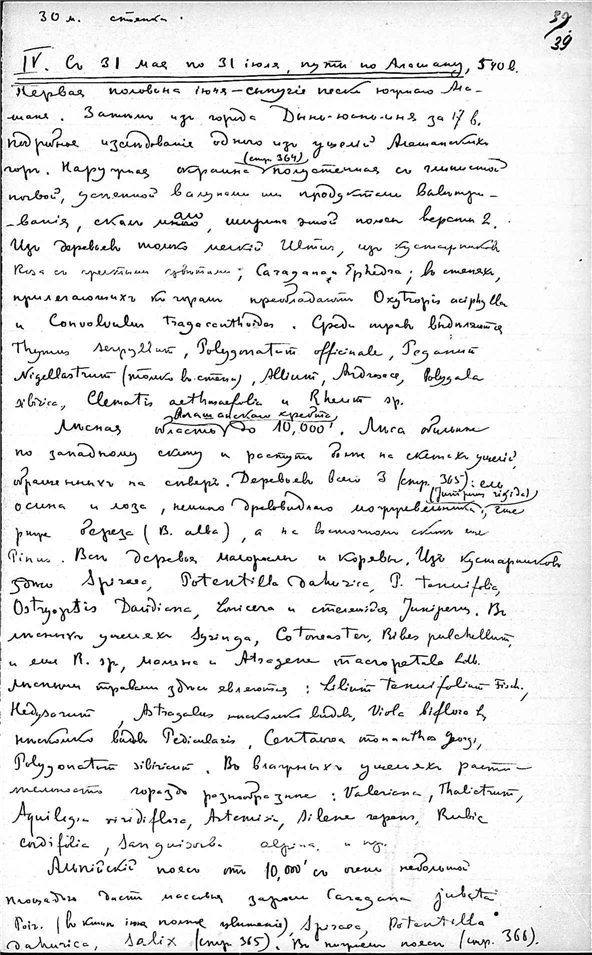 30 м. степки.
39
39
IV. Съ 31 мая по 31 июля, пути по Алашану, 540 в.
Первая половина iюня – сыпучiе пески южнаго Ала-
шаня. Затемъ изъ города Дынь-юань-иня за 17 в.
подробное изследованiе одного изъ ущелiй Алашанскихъ
(стр. 364)
горъ. Наружная окраина полустепная съ глинистой
почвой, усеянной валунами или продуктами выветри-
-ванiя, скалъ мало, ширина этой полосы версты 2.
Изъ деревьевъ только мелкiй Ильмъ, изъ кустарниковъ
Роза съ желтыми цветами; Caragana, Ephedra; въ степяхъ,
прилегающихъ къ горамъ преобладаютъ Oxytropis aciphylla
и Convolvulus tragacanthoides. Среди травъ выделяются
Thymus serpyllum, Polygonatum officinale, Peganum
Nigellastrum (только въ степи), Allium, Androsace, Polygala
sibirica, Clematis aethusaefolia и Rheum sp.
Алашанскаго хребта
Лесная область до 10,000'. Леса обильнее
по западному склону и растутъ более на скатахъ ущелiй,
обращенныхъ на северъ. Деревьевъ всего 3 (стр. 365): ель
(Juniperus rigida)
осина и лоза, немного древовиднаго можжевельника, еще
реже береза (B. alba), а на восточномъ склоне еще
Pinus. Все деревья малорослы и корявы. Изъ кустарниковъ
здесь Spiraea, Potentilla dahurica, P. tenuifolia,
Ostryopsis Davidiana, Lonicera и стелющiйся Juniperus. Въ
лесныхъ ущельяхъ Syringa, Cotoneaster, Ribes pulchellum,
и еще R. sp, малина и Atragene macropetala Ldb.
Лесными травами здесь являются: Lilium tenuifolium Fisch.,
Hedysarum, Astragalus несколько видовъ, Viola biflora L,
несколько видовъ Pedicularis, Centaurea monanthos Georgi,
Polygonatum sibiricum. Въ влажныхъ ущельяхъ расти-
тельность гораздо разнообразнее: Valeriana, Thalictrum,
Aquilegia viridiflora, Artemisia, Silene repens, Rubia
cordifolia, Sanguisorba alpina. и пр.
Альпiйскiй поясъ отъ 10,000' съ очень небольшой
площадью даетъ массовыя заросли Caragana jubata
Poir. (въ конце iюня полное цветенiе), Spiraea, Potentilla
dahurica, Salix (стр. 365). Въ верхнемъ поясе (стр. 366).